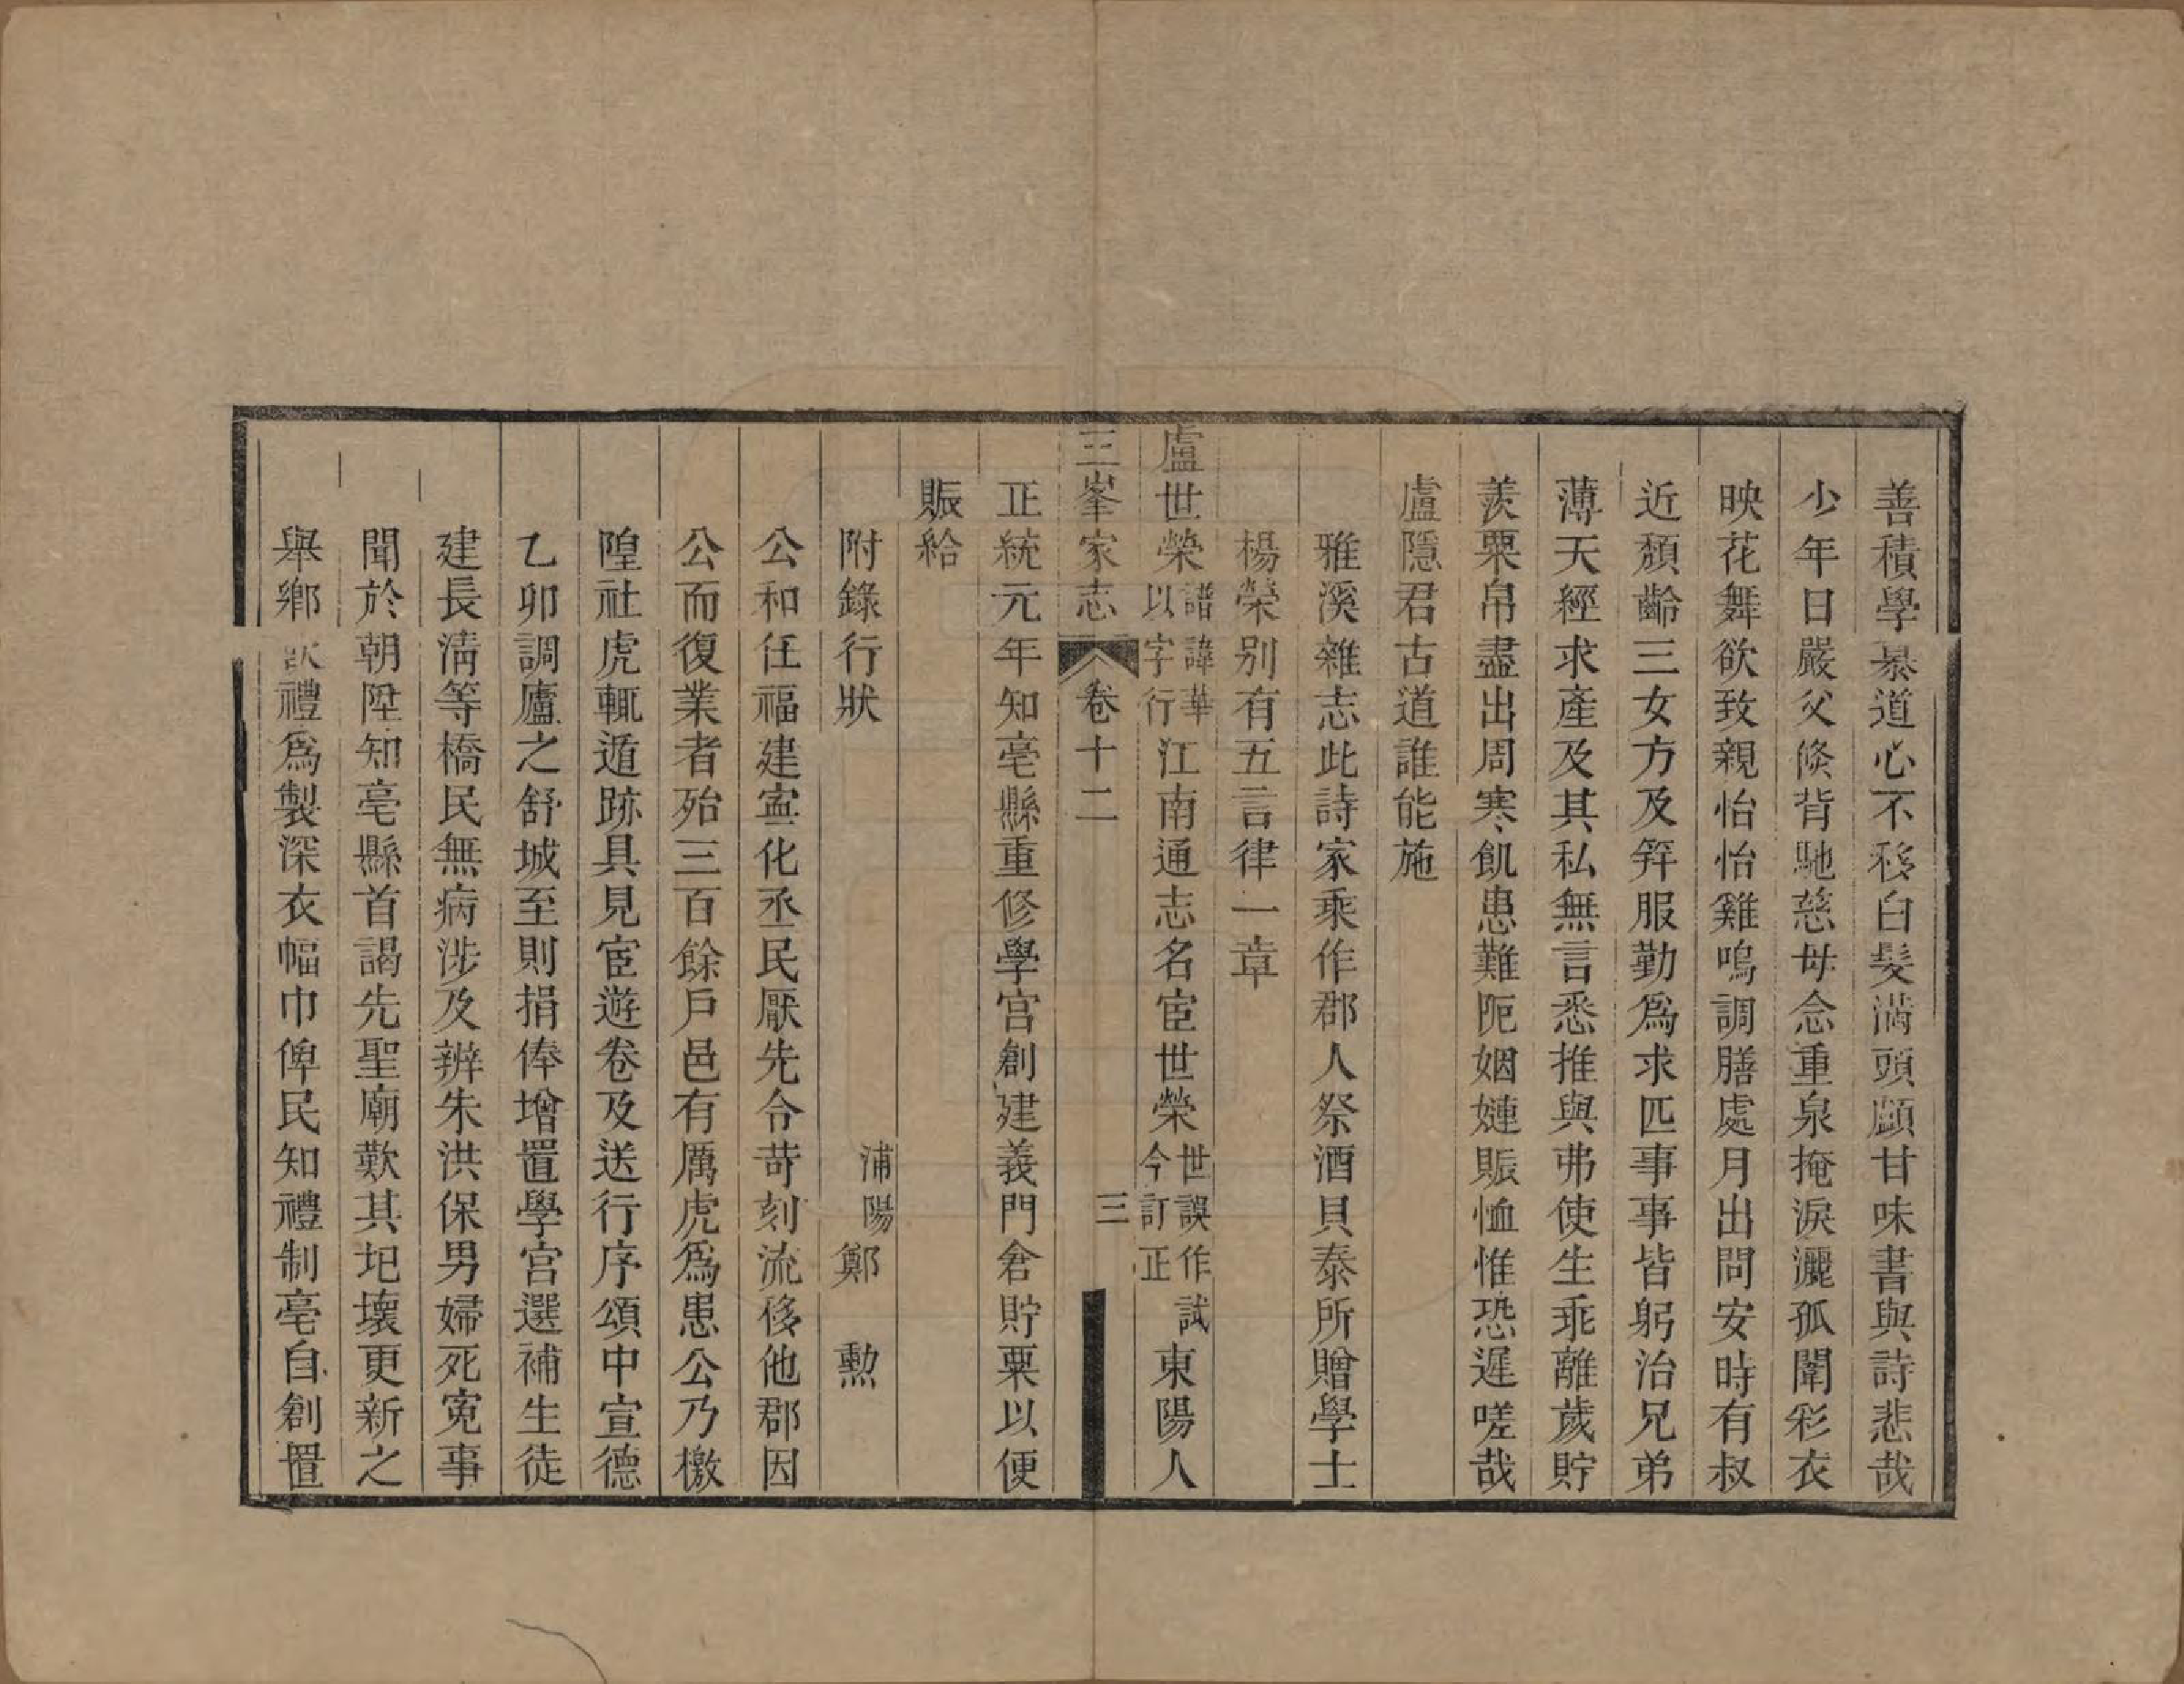 善積學暴道心不移白髮滿頭顱甘味書與詩悲哉
少年日嚴父倏背馳慈母念重泉掩淚灑孤闈彩衣
映花舞欲致親怡怡雞鳴調膳處月出問安時有叔
近頹齡三女方及筓服勤爲求匹事事皆躬治兄弟
薄天經求產及其私無言悉推與弗使生乖離歲貯
羨粟帛盡出周寒飢患難阨姻嫌賑恤惟恐遲嗟哉
盧隱君古道誰能施
雅溪雜志此詩家乘作郡人祭酒貝泰所贈學士
楊榮別有五言律一章
盧世榮譜諱華以字行江南通志名宦世榮世誤作試今訂正東陽人
三峯家志 卷十二 三
正統元年知亳縣重修學宮創建義門倉貯粟以便
賑給
附錄行狀 浦陽鄭 勲
公和任福建寧化丞民厭先令苛刻流移他郡因
公而復業者殆三百餘戶邑有厲虎爲患公乃檄
隍社虎輒遁跡具見宦遊卷及送行序頌中宣德
乙卯調廬之舒城至則捐俸增置學宮選補生徒
建長清等橋民無病涉及辨朱洪保男婦死寃事
聞於朝陞知亳縣首謁先聖廟歎其圯壞更新之
舉鄉飲禮爲製深衣幅巾俾民知禮制亳自創置